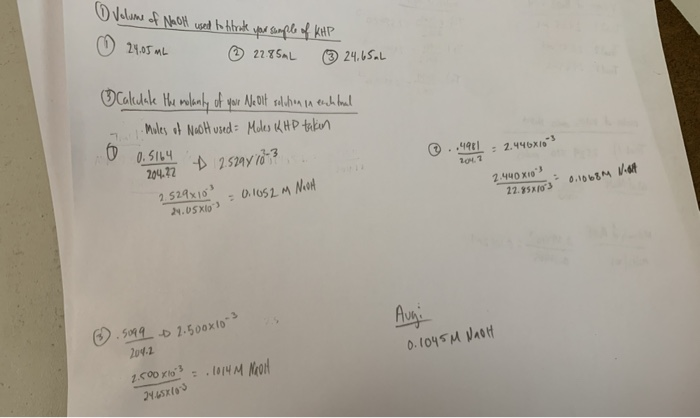 ① Volume of NaOH used to titrate your sample of KHP
① 24.05 mL ② 22.85mL ③ 24.65mL
③ Calculate the molarity of your NaOH solution in each trial
Moles of NaOH used = Moles KHP taken
① 0.5164 / 204.22 → 2.529 x 10⁻³
2.529x10⁻³ / 24.05x10⁻³ = 0.1052 M NaOH
② .4981 / 204.2 = 2.440x10⁻³
2.440x10⁻³ / 22.85x10⁻³ = 0.1068M NaOH
③ .5099 / 204.2 → 2.500x10⁻³
2.500x10⁻³ / 24.65x10⁻³ = .1014M NaOH
Avg:
0.1045M NaOH